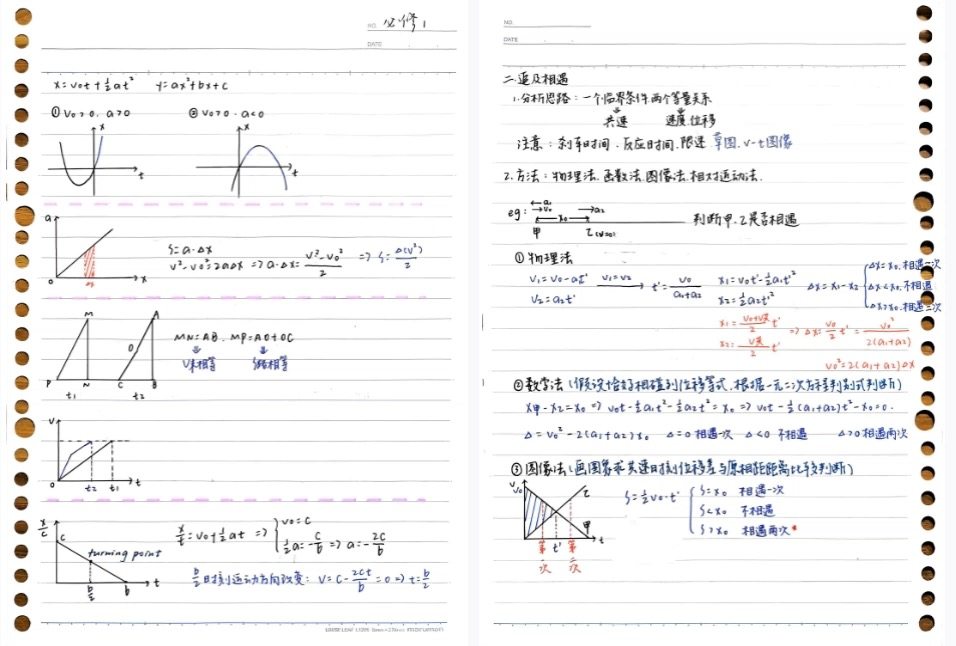 NO. 必修1
DATE
x=v₀t+½at² y=ax²+bx+c
① v₀>0.a>0 ② v₀>0.a<0
x x
t t
a
S=a·Δx
v²-v₀²=2aΔx => a·Δx=(v²-v₀²)/2 => S=Δ(v²)/2
0 Δx x
M A
O
MN=AB. MP=AO+OC
V末相等 路程相等
P N C B
t₁ t₂
v
0 t₂ t₁ t
x/t
C
x/t=v₀+½at => { v₀=c
½a=-c/b => a=-2c/b
turning point
b/2 b t
b/2时刻运动方向改变: V=C-2ct/b=0 => t=b/2
NO.
DATE
二.追及相遇
1.分析思路:一个临界条件,两个等量关系
共速 速度.位移
注意:刹车时间.反应时间.限速.草图.v-t图像
2.方法:物理法.函数法.图像法.相对运动法.
eg: a₁ v₀ x₀ a₂ 判断甲.乙是否相遇
甲 乙(v=0)
① 物理法
v₁=v₀-a₁t' v₁=v₂ t'=v₀/(a₁+a₂) x₁=v₀t'-½a₁t'² Δx=x₁-x₂ { Δx=x₀.相遇一次
v₂=a₂t' x₂=½a₂t'² Δx<x₀.不相遇
Δx>x₀.相遇二次
x₁=(v₀+v共)/2 t'
x₂=v共/2 t' => Δx=v₀/2 t'=v₀²/2(a₁+a₂)
v₀²=2(a₁+a₂)Δx
② 数学法(假设恰好相碰列位移等式.根据一元二次方程判别式判断)
x甲-x乙=x₀ => v₀t-½a₁t²-½a₂t²=x₀ => v₀t-½(a₁+a₂)t²-x₀=0.
Δ=v₀²-2(a₁+a₂)x₀ Δ=0 相遇一次 Δ<0 不相遇 Δ>0 相遇两次
③ 图像法(画图象求共速时刻位移差与原相距距离比较判断)
v
v₀ 乙
S=½v₀·t' { S=x₀ 相遇一次
S<x₀ 不相遇
S>x₀ 相遇两次*
甲
t' t
第一次 第二次